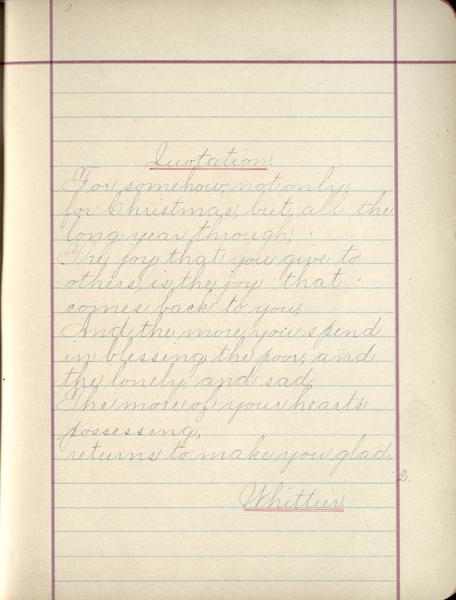 Quotation.
For somehow, not only,
for Christmas, but, all the
long year through,
The joy that you give to
others, is the joy that
comes back to you,
And the more you spend
in blessing the poor, and
the lonely, and sad,
The more of your heart's
possessing,
returns to make you glad.
2.
Whittier